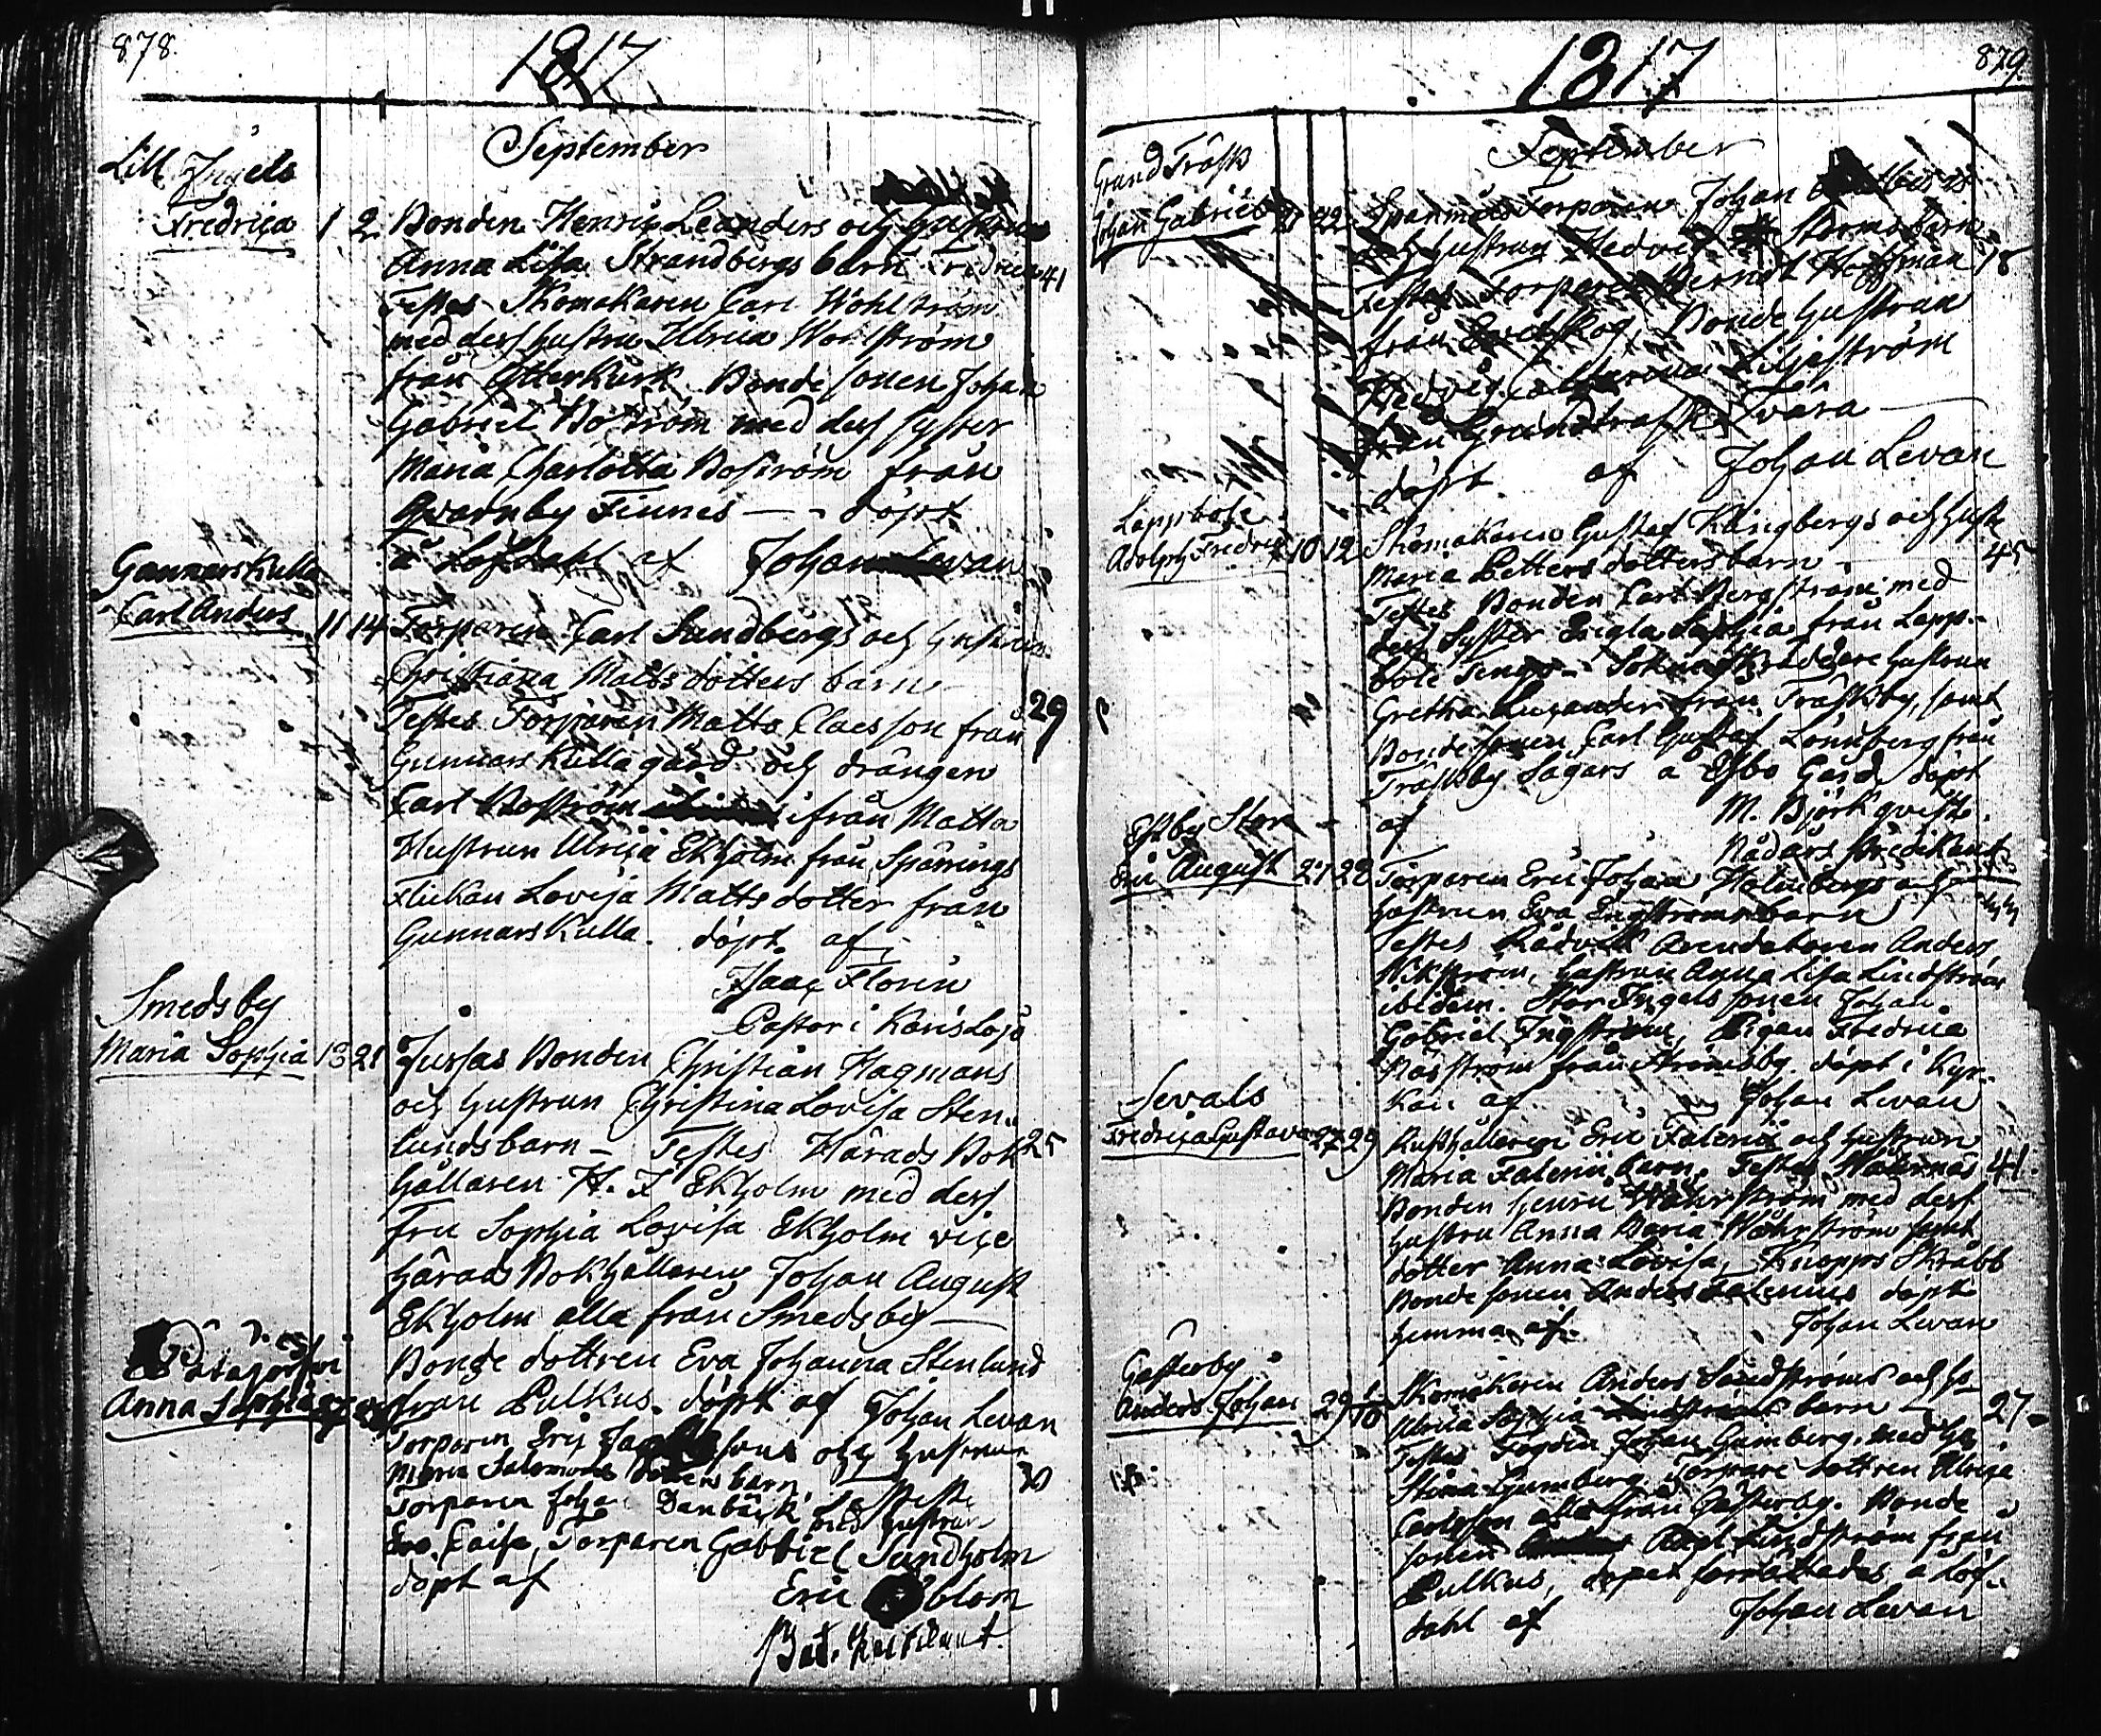 878.
1817
September
Lill Ingels
Fredrica 1 2 Bonden Henric Leanders och hustruns
Anna Lisa Strandbergs barn Fredrica 41
Testes Skomakaren Carl Wohlström
med dess hustru Ulrica Wohlström
från Österkurk Bondesonen Johan
Gabriel Boström med dess syster
Maria Charlotta Boström från
Qvarnby Finnes — - döpt
å Löfdahl af Johan Levan
Gunnarskulla
Carl Anders 11 14 Torparen Carl Sandbergs och hustruns
Christiana Matts dotters barn
Testes Torparen Matts Claesson från 29
Gunnarskulla gård och drängen
Carl Boström ifrån Matta
Hustrun Ulrica Ekholm från Sparrings
Flickan Lovisa Matts dotter från
Gunnarskulla. döpt af
Isaac Florin
Pastor i Karislojo
Smedsby
Maria Sophia 13 21 Jussas Bonden Christian Hagmans
och hustrun Christina Lovisa Sten-
lunds barn - Testes Härads Bok 25
hållaren H. F Ekholm med dess
Fru Sophia Lovisa Ekholm vice
härads Bokhållaren Johan August
Ekholm alla från Smedsby —
Bonde dottren Eva Johanna Stenlund
från Pulkus. döpt af Johan Levan
Anna Sophia Torparen Eric och hustrun
Maria Salomons barn. Testes 30
Torparen Johan Danbäck hustrun
Eva Caisa, Torparen Gabriel Sundholm
döpt af Eric blom
Bat. Predikant.
879.
1817
September
Grand Träsk
Johan Gabriel 22 Torparen Johan
och hustrun Hedvig barn 18
Testes Torparen Berndt Hoffman
från Bonde hustrun
Hedvig Catharina Liljeström
från Grundträsk Tvära —
döpt af Johan Levan
Lappböle
Adolph Fredric 10 12 Skomakaren Gustaf Klingbergs och hust
Maria Petters dotters barn 45
Testes Bonden Carl Bergström med
dess Syster Brigta Sophia från Lapp-
böle Tengo - Sokneskräddare hustrun
Gretha från Träskby, samt
Bondesonen Carl Gustaf Lönnberg från
Träskby Sågars å Esbo Gård döpt
af M. Björkqvist.
Nådårs predikant
Esby Stor
Eric August 21 28 Torparen Eric Johan Holmbergs och
hustrun Eva Engströms barn 44
Testes Rådvik Arendatoren Anders
Wikström, hustrun Anna Lisa Lindström
ibidem. Stor Ingels sonen Johan
Gabriel Ingström, Pigan Fredrica
Näsström från Strömsby. döpt i Kyr-
kan af Johan Levan
Sevals
Fredrica Gustava 27 29 Rusthållaren Eric Falenii och hustrun
Maria Falenii barn. Testes 41.
Bonden Henric Wåhrström med dess
hustru Anna Maria Wåhrström samt
dotter Anna Lovisa, Knapps Skrabb
Bonde sonen Anders Falenius döpt
hemma af Johan Levan
Gasterby
Anders Johan 29 1/10 Skomakaren Anders Sandströms och h-
Ulrica Sophia barn - 27-
Testes Fogden Johan Gumberg. med h
Stina Gumberg. Torpare dottren Ulrica
Carlsson alla från Gästerby. Bonde
sonen Axel Lindström från
Pulkus, dopet förrättades å Löf-
dahl af Johan Levan